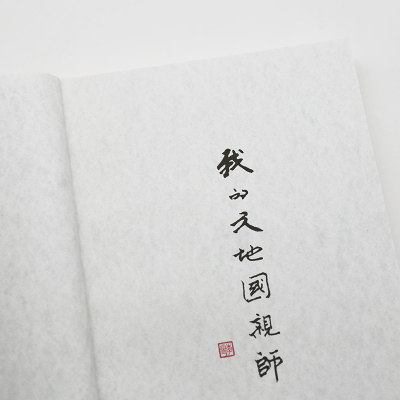 我的天地國親師